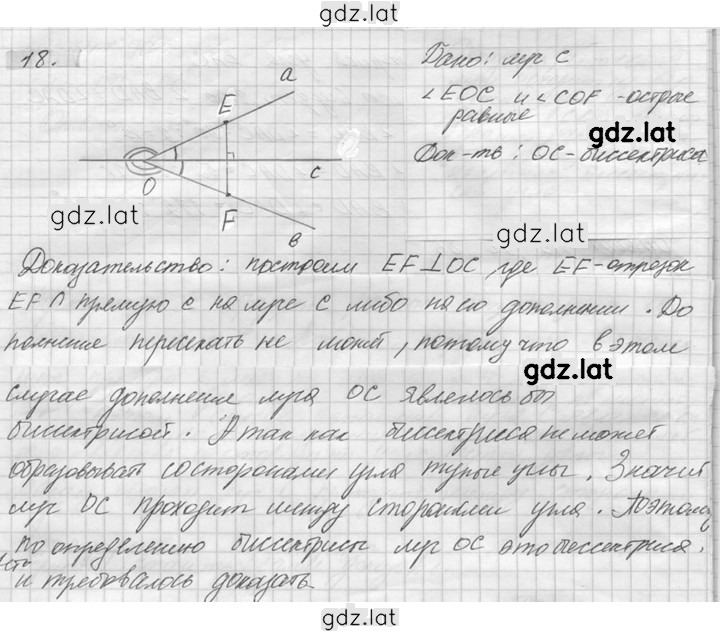 gdz.lat
18.
a
E
O
c
F
в
Дано: луч с
∠EOC и ∠COF - острые
равные
gdz.lat
Док-ть: OC - биссектриса
gdz.lat
Доказательство: построим EF⊥OC, где EF - отрезок
gdz.lat
EF ∩ прямую с на луче с либо на его дополнении. До
полнение пересекать не может, потому что в этом
gdz.lat
случае дополнение луча OC являлось бы
биссектрисой. А так как биссектриса не может
образовывать со сторонами угла тупые углы. Значит
луч OC проходит между сторонами угла. Поэтому
по определению биссектрисы луч OC это биссектриса.
что и требовалось доказать
gdz.lat